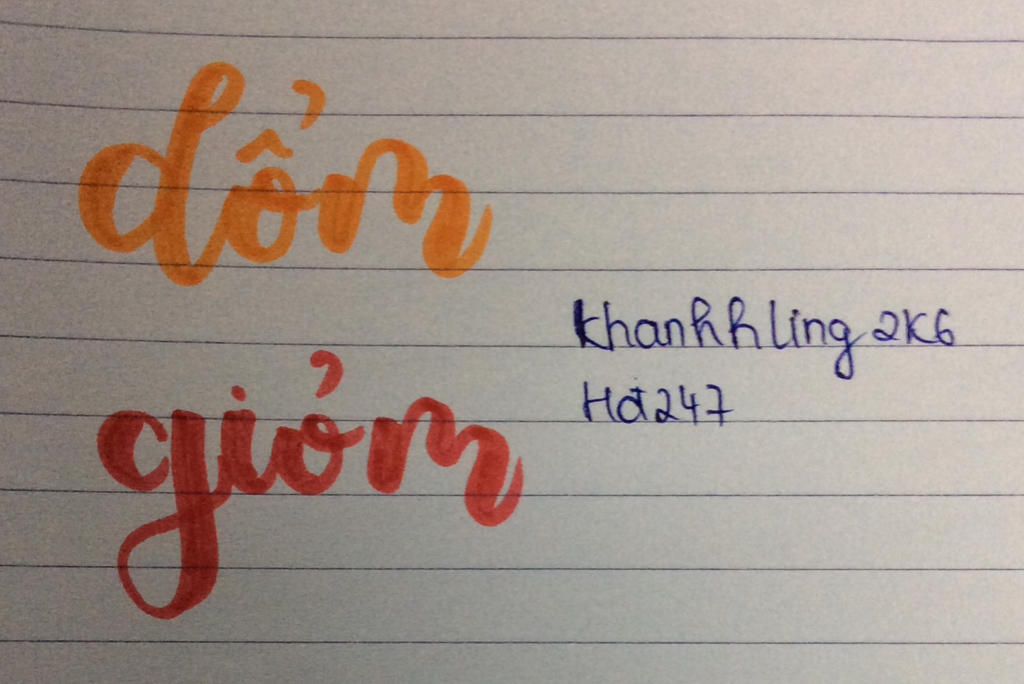 dổm
giỏm
khanhhling 2K6
Hđ247